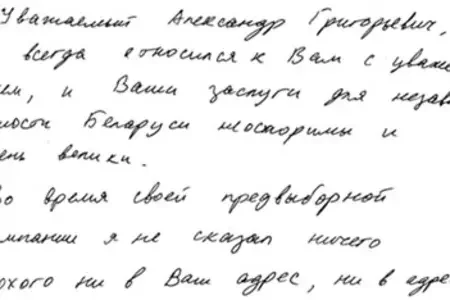 Уважаемый Александр Григорьевич,
всегда относился к Вам с уваже
ем, и Ваши заслуги для незав
мости Беларуси неоспоримы и
ень велики.
Во время своей предвыборной
мпании я не сказал ничего
охого ни в Ваш адрес, ни в адре